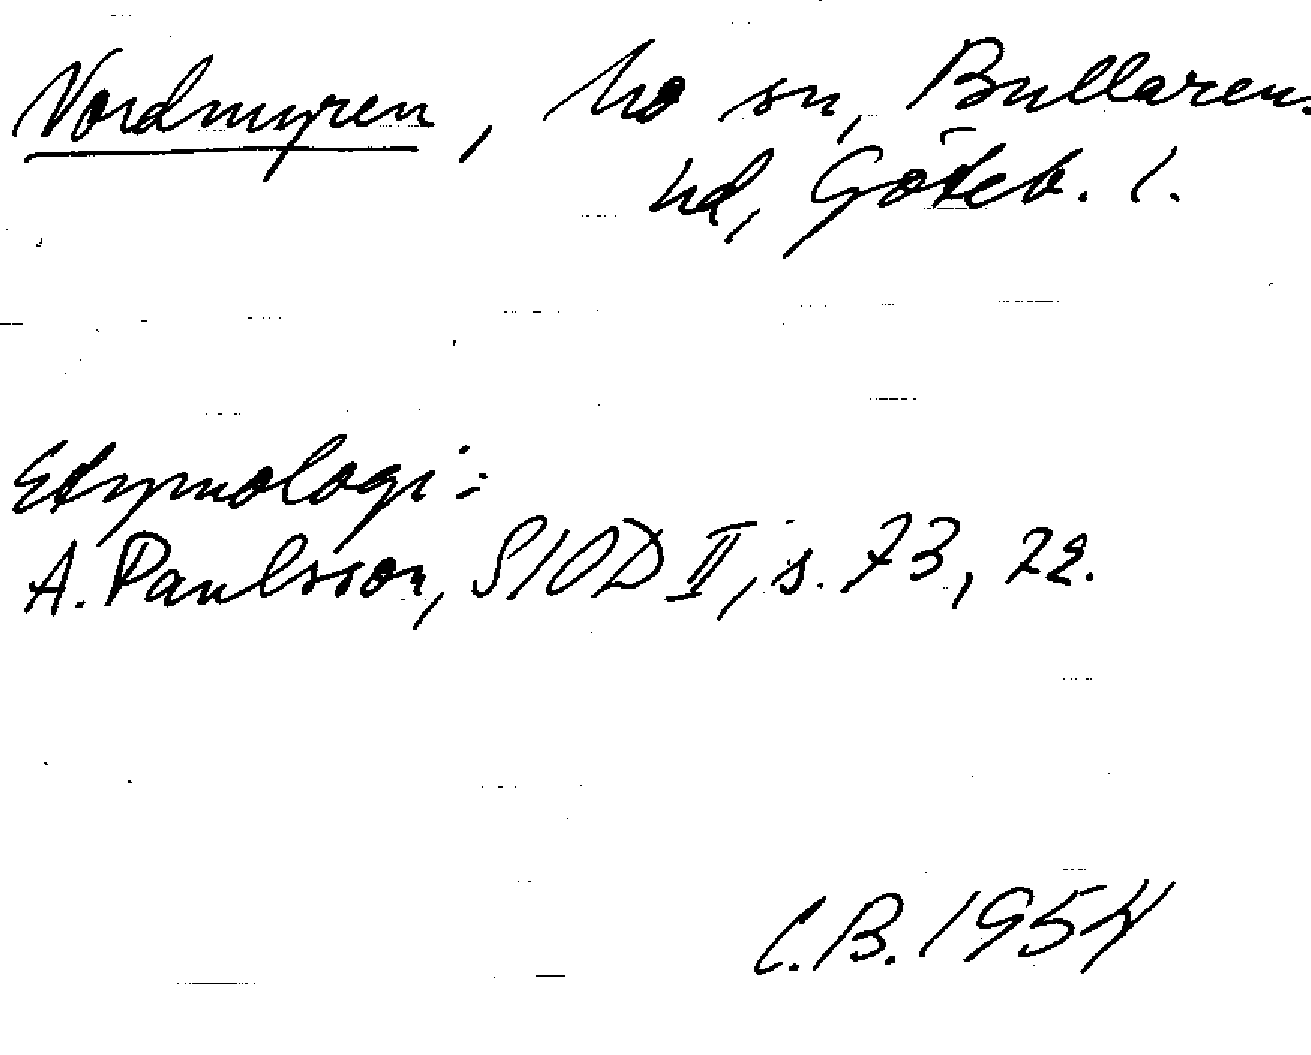 Nordmyren, Mo sn, Bullarens
hd, Göteb. l.
Etymologi:
A. Paulsson, SIOD II, s. 73, 72.
C.B. 1954